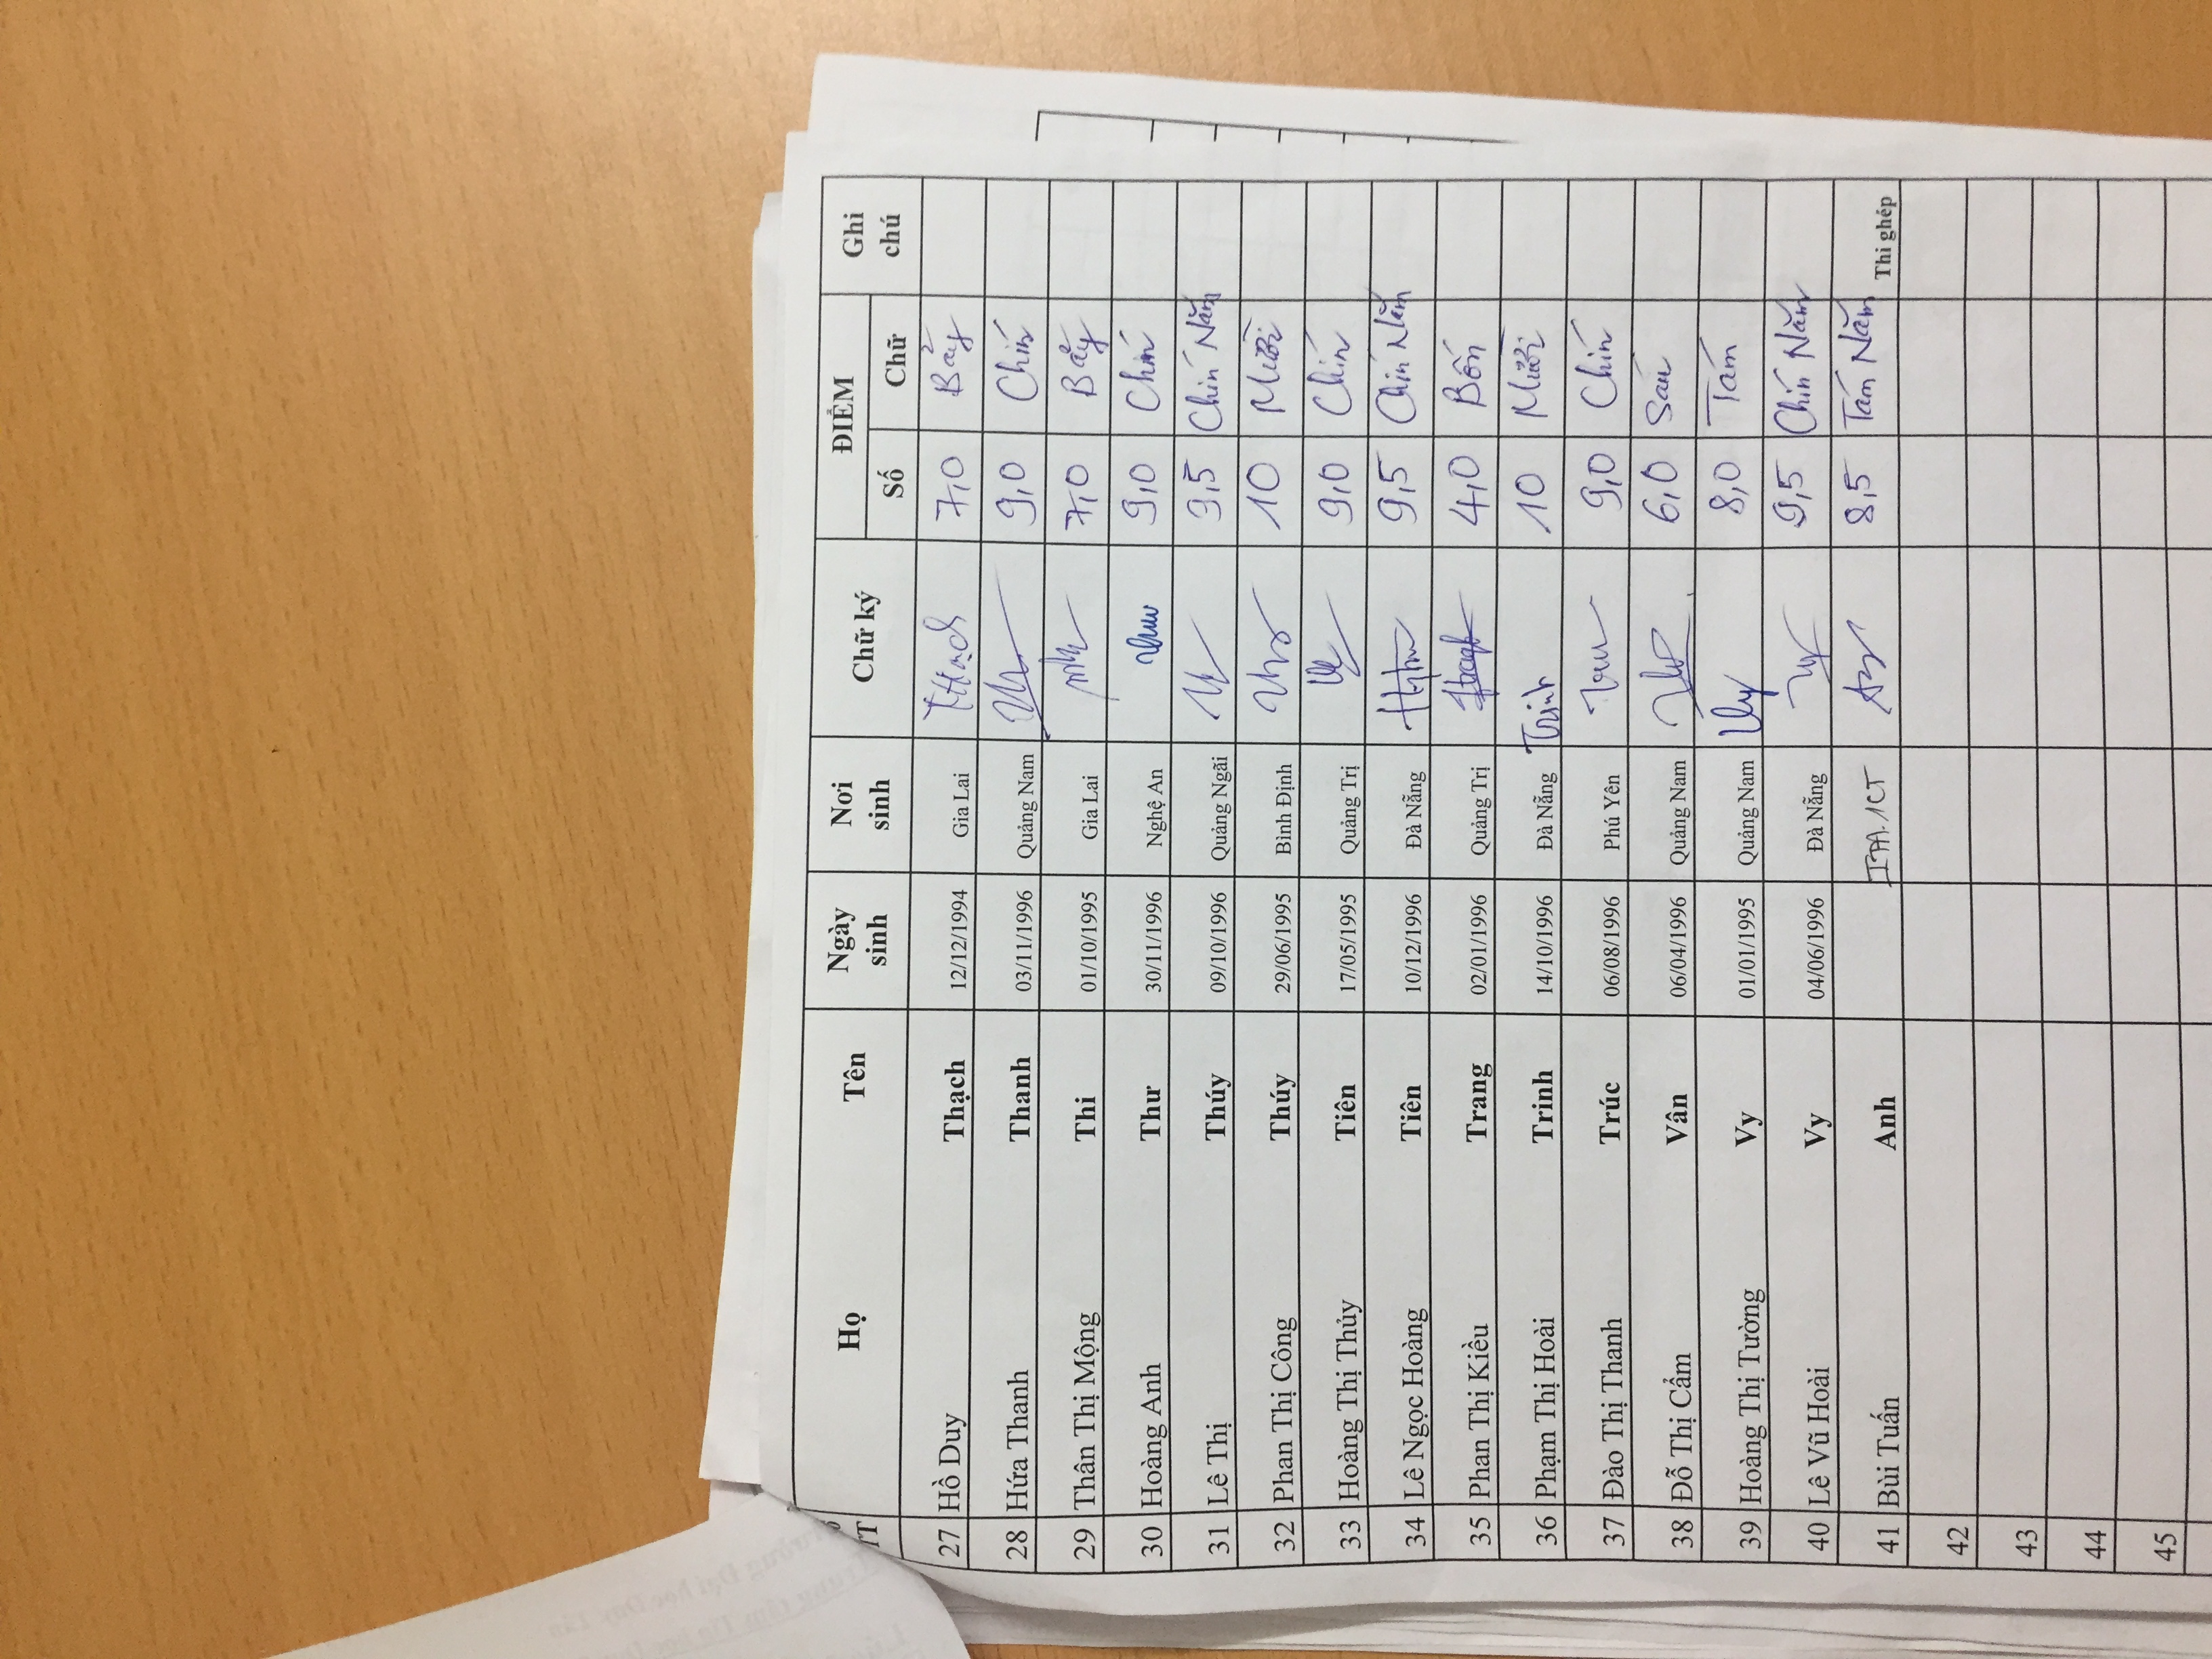 Số TT Họ Tên Ngày sinh Nơi sinh Chữ ký ĐIỂM Số Chữ Ghi chú
27 Hồ Duy Thạch 12/12/1994 Gia Lai Thạch 7,0 Bảy
28 Hứa Thanh Thanh 03/11/1996 Quảng Nam 9,0 Chín
29 Thân Thị Mộng Thi 01/10/1995 Gia Lai 7,0 Bảy
30 Hoàng Anh Thư 30/11/1996 Nghệ An 9,0 Chín
31 Lê Thị Thúy 09/10/1996 Quảng Ngãi 9,5 Chín Năm
32 Phan Thị Công Thúy 29/06/1995 Bình Định 10 Mười
33 Hoàng Thị Thủy Tiên 17/05/1995 Quảng Trị 9,0 Chín
34 Lê Ngọc Hoàng Tiên 10/12/1996 Đà Nẵng 9,5 Chín Năm
35 Phan Thị Kiều Trang 02/01/1996 Quảng Trị 4,0 Bốn
36 Phạm Thị Hoài Trinh 14/10/1996 Đà Nẵng Trinh 10 Mười
37 Đào Thị Thanh Trúc 06/08/1996 Phú Yên 9,0 Chín
38 Đỗ Thị Cẩm Vân 06/04/1996 Quảng Nam 6,0 Sáu
39 Hoàng Thị Tường Vy 01/01/1995 Quảng Nam 8,0 Tám
40 Lê Vũ Hoài Vy 04/06/1996 Đà Nẵng 9,5 Chín Năm
41 Bùi Tuấn Anh 8,5 Tám Năm Thi ghép
42
43
44
45